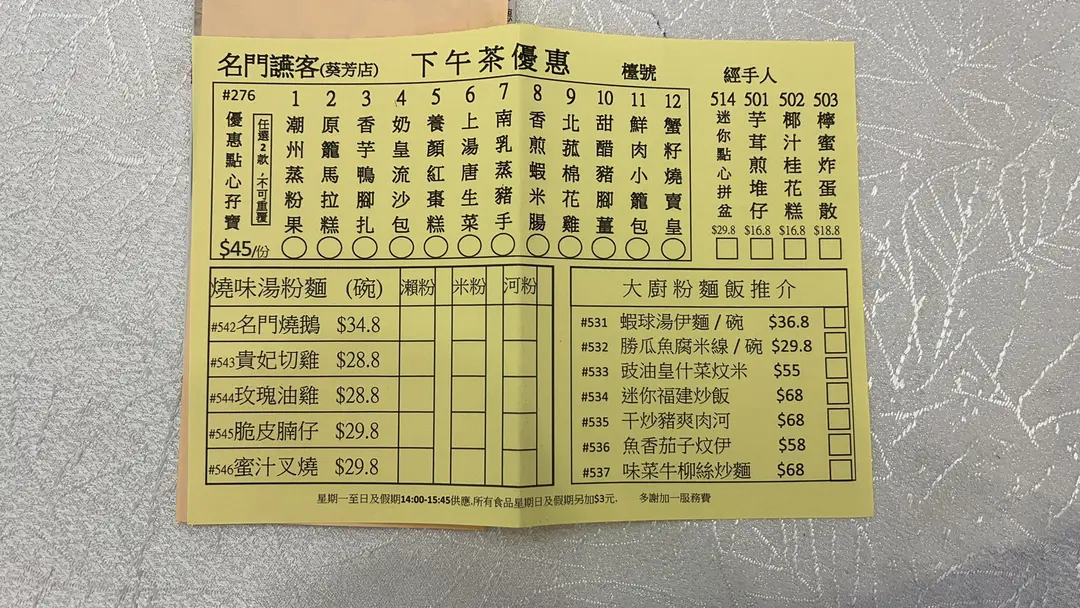 名門讌客(葵芳店) 下午茶優惠 檯號 經手人
#276
優惠點心孖寶
$45/份
任選2款,不可重覆
1 潮州蒸粉果
2 原籠馬拉糕
3 香芋鴨腳扎
4 奶皇流沙包
5 養顏紅棗糕
6 上湯唐生菜
7 南乳蒸豬手
8 香煎蝦米腸
9 北菰棉花雞
10 甜醋豬腳薑
11 鮮肉小籠包
12 蟹籽燒賣皇
514 迷你點心拼盆 $29.8
501 芋茸煎堆仔 $16.8
502 椰汁桂花糕 $16.8
503 檸蜜炸蛋散 $18.8
燒味湯粉麵 (碗) 瀨粉 米粉 河粉
#542名門燒鵝 $34.8
#543貴妃切雞 $28.8
#544玫瑰油雞 $28.8
#545脆皮腩仔 $29.8
#546蜜汁叉燒 $29.8
大廚粉麵飯推介
#531 蝦球湯伊麵 / 碗 $36.8
#532 勝瓜魚腐米線 / 碗 $29.8
#533 豉油皇什菜炆米 $55
#534 迷你福建炒飯 $68
#535 干炒豬爽肉河 $68
#536 魚香茄子炆伊 $58
#537 味菜牛柳絲炒麵 $68
星期一至日及假期14:00-15:45供應,所有食品星期日及假期另加$3元. 多謝加一服務費